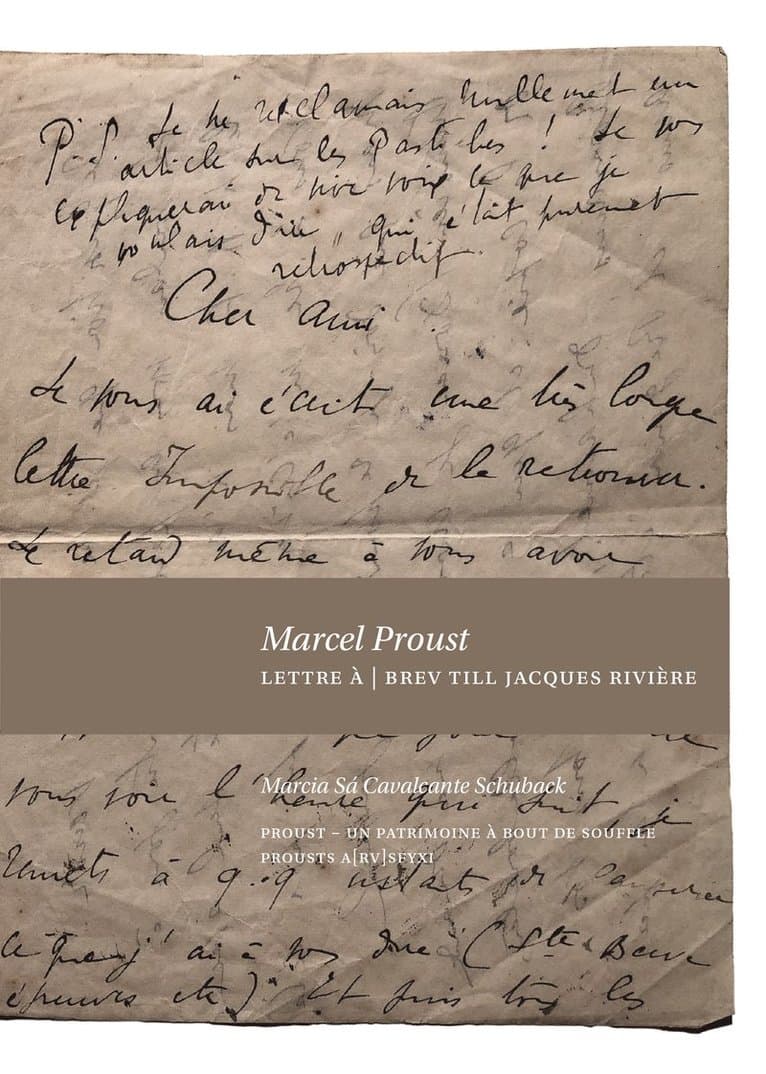 P.S. Je ne réclamais nullement un
article sur les Pastiches ! Je vous
expliquerai de vive voix ce que je
voulais dire, qui était purement
rétrospectif.
Cher ami
Je vous ai écrit une très longue
lettre Impossible de la retrouver.
Le retard même à vous avoir
Marcel Proust
LETTRE À | BREV TILL JACQUES RIVIÈRE
vous voir l'heure qu'il soit, je
Marcia Sá Cavalcante Schuback
PROUST – UN PATRIMOINE À BOUT DE SOUFFLE
PROUSTS A[RV]SFYXI
remets à q.q instants de
ce que j'ai à vous dire (Ste Beuve
épreuves etc) Et puis tous les